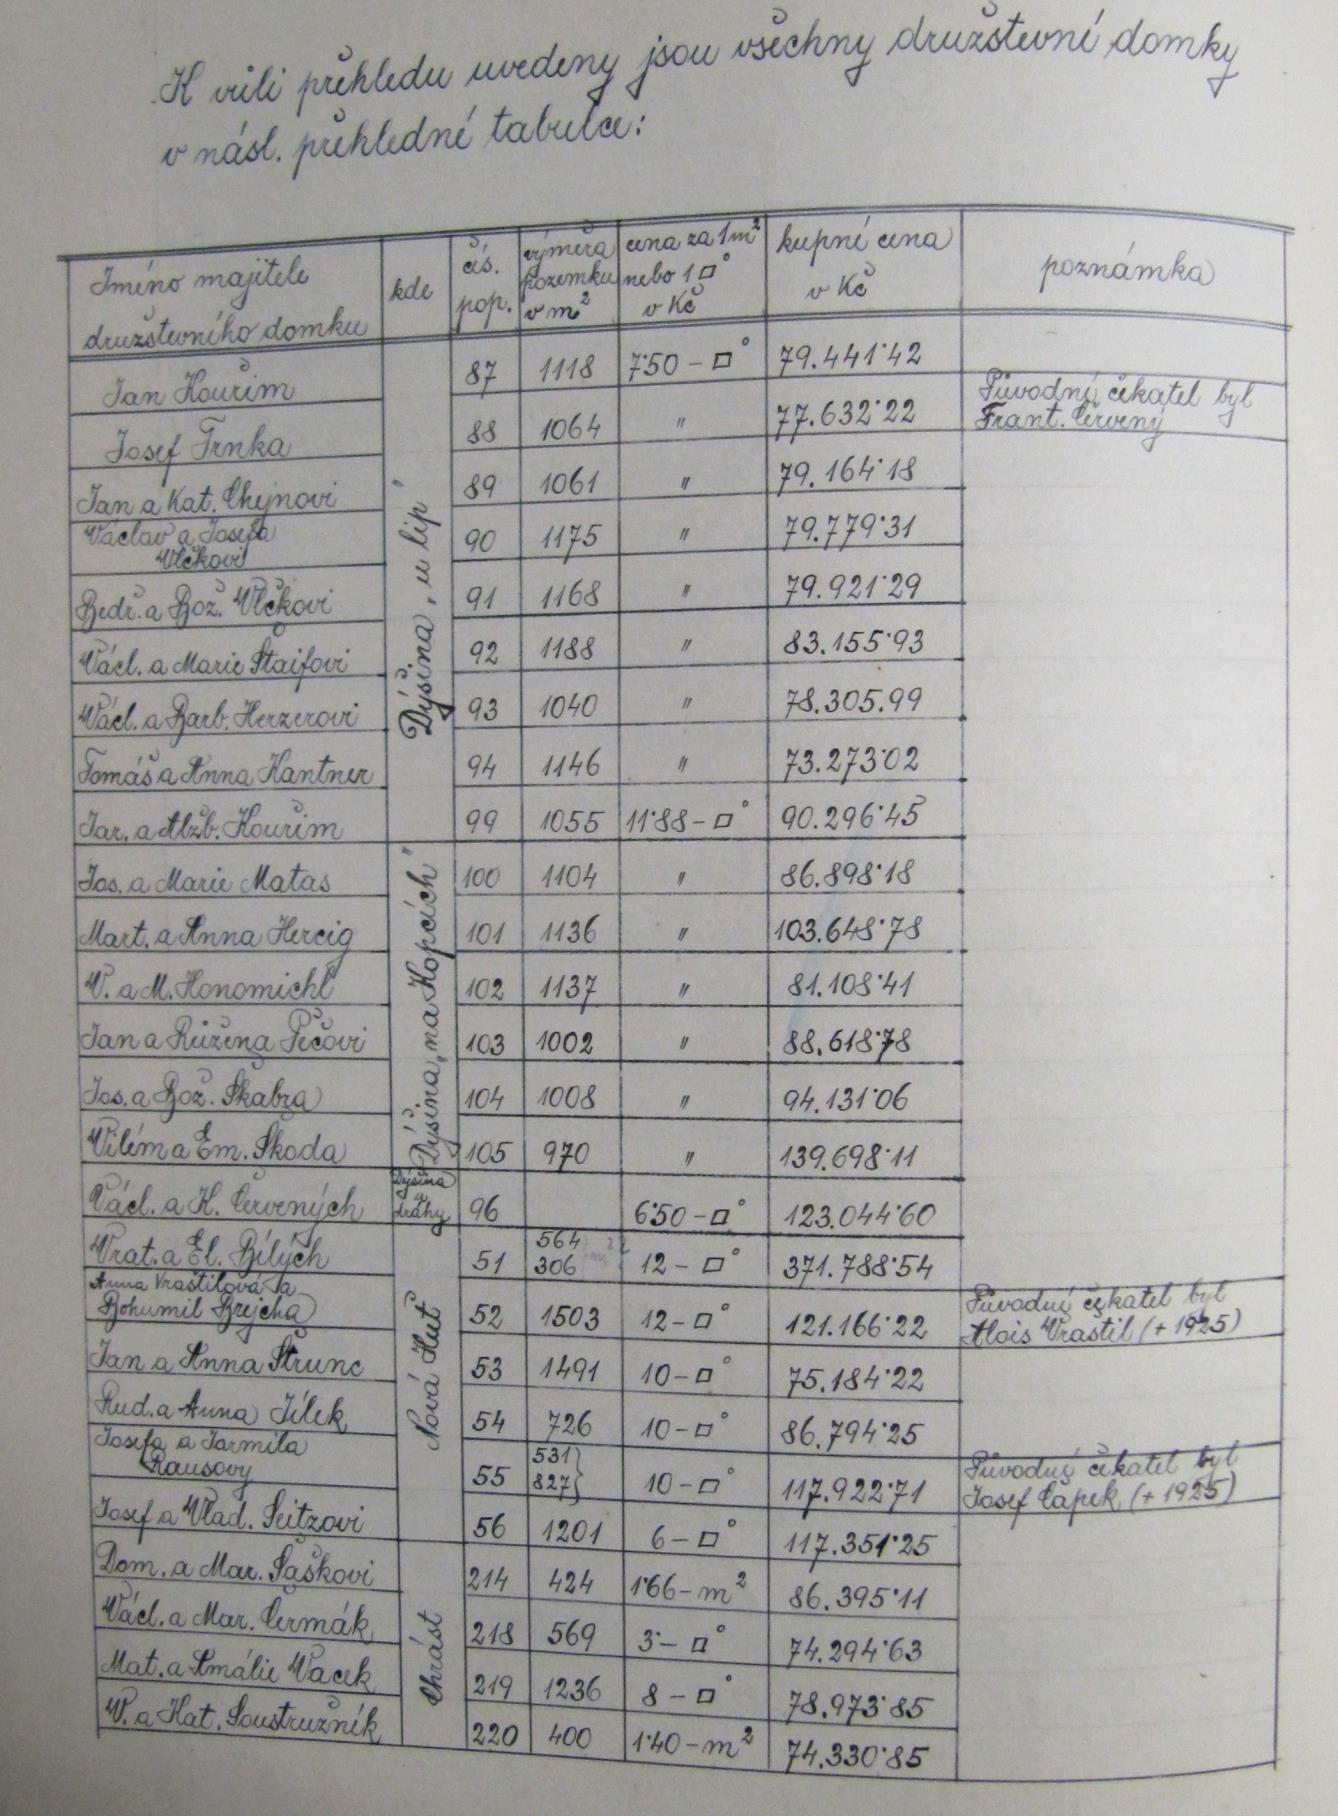 K vůli přehledu uvedeny jsou všechny družstevní domky
v násl. přehledné tabulce:
Jméno majitele družstevního domku | kde | čís. pop. | výměra pozemku v m² | cena za 1m² nebo 1□° v Kč | kupní cena v Kč | poznámka
Jan Kouřim | Dýšina „u lip" | 87 | 1118 | 7·50 – □° | 79.441·42
Josef Trnka | 88 | 1064 | " | 77.632·22 | Původný čekatel byl Frant. Červený
Jan a Kat. Chejnovi | 89 | 1061 | " | 79.164·18
Václav a Josefa Vlčkovi | 90 | 1175 | " | 79.779·31
Bedř. a Bož. Vlčkovi | 91 | 1168 | " | 79.921·29
Václ. a Marie Štaifovi | 92 | 1188 | " | 83.155·93
Václ. a Barb. Herzerovi | 93 | 1040 | " | 78.305.99
Tomáš a Anna Hantner | 94 | 1146 | " | 73.273·02
Jar. a Alžb. Kouřim | 99 | 1055 | 11·88 – □° | 90.296·45
Jos. a Marie Matas | Dýšina „na Kopcích" | 100 | 1104 | " | 86.898·18
Mart. a Anna Hercig | 101 | 1136 | " | 103.648·78
V. a M. Honomichl | 102 | 1137 | " | 81.108·41
Jan a Růžena Pečovi | 103 | 1002 | " | 88.618·78
Jos. a Bož. Škabra | 104 | 1008 | " | 94.131·06
Vilém a Em. Škoda | 105 | 970 | " | 139.698·11
Václ. a K. Červených | Dýšina u dráhy | 96 | 6·50 – □° | 123.044·60
Vrat. a El. Bílých | Nová Huť | 51 | 564 306 | 12 – □° | 371.788·54
Anna Vraštilová a Bohumil Brejcha | 52 | 1503 | 12 – □° | 121.166·22 | Původný čekatel byl Alois Vraštil (+ 1925)
Jan a Anna Štrunc | 53 | 1491 | 10 – □° | 75.184·22
Rud. a Anna Jílek | 54 | 726 | 10 – □° | 86.794·25
Josefa a Jarmila Rausovy | 55 | 531 827} | 10 – □° | 117.922·71 | Původný čekatel byl Josef Čapek (+ 1925)
Josef a Vlad. Seitzovi | 56 | 1201 | 6 – □° | 117.351·25
Dom. a Mar. Šaškovi | Chrást | 214 | 424 | 1·66 – m² | 86.395·11
Václ. a Mar. Čermák | 218 | 569 | 3·– □° | 74.294·63
Mat. a Amálie Vacek | 219 | 1236 | 8 – □° | 78.973·85
V. a Kat. Soustružník | 220 | 400 | 1·40 – m² | 74.330·85